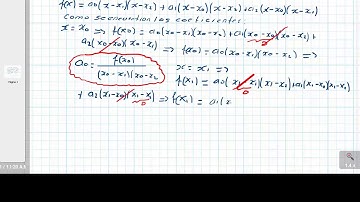 f(x) = a0(x-x1)(x-x2) + a1(x-x0)(x-x2) + a2(x-x0)(x-x1)
como se encuentran los coeficientes:
x = x0 ⇒ f(x0) = a0(x0-x1)(x0-x2) + a1(x0-x0)(x0-x2) +
a2(x0-x0)(x0-x1) ⇒ f(x0) = a0(x0-x1)(x0-x2) ⇒
a0 = f(x0) / (x0-x1)(x0-x2)
x = x1 ⇒
f(x1) = a0(x1-x1)(x1-x2) + a1(x1-x0)(x1-x2)
+ a2(x1-x0)(x1-x1) ⇒ f(x1) = a1(x